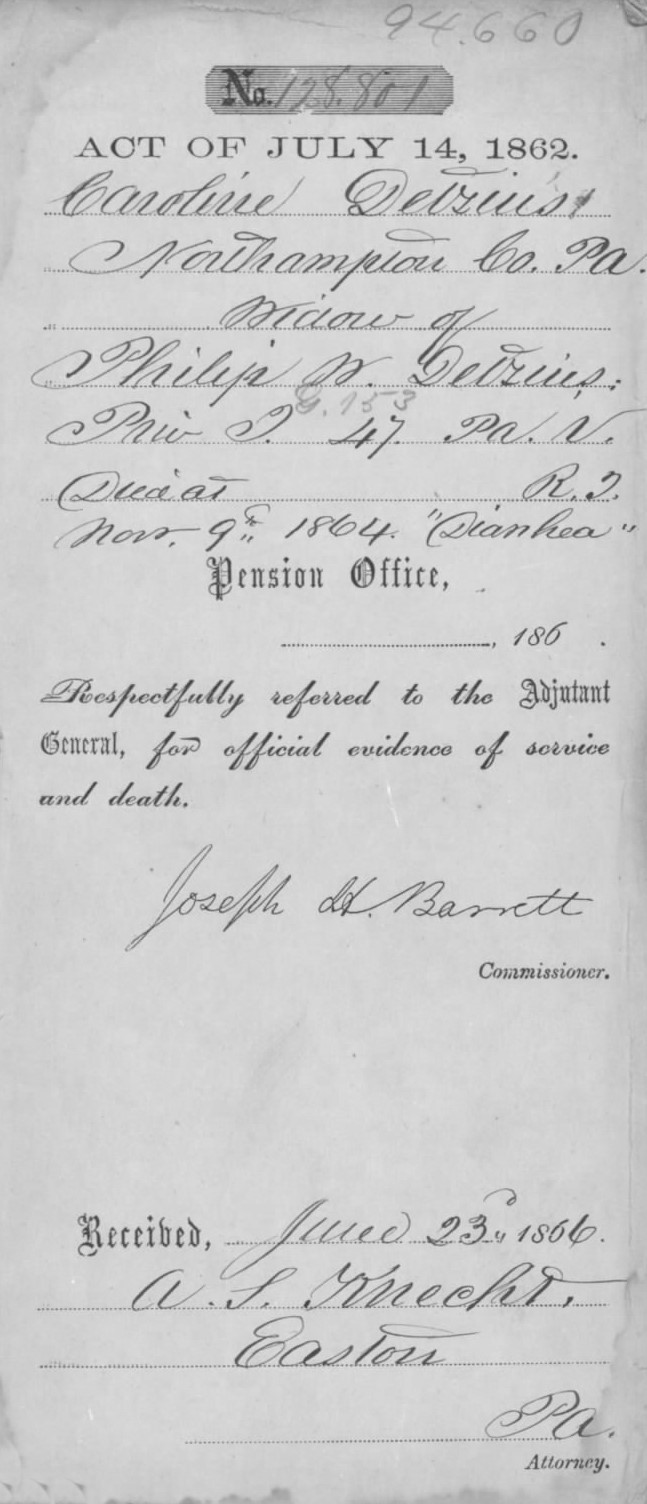 94.660
No. 128.801
ACT OF JULY 14, 1862.
Caroline Detzius
Northampton Co. Pa.
Widow of
Philip W. Detzius:
G. 153
Priv I. 47. Pa. V.
Died at R. I.
Nov. 9th 1864. "Diarrhea"
Pension Office,
, 186 .
Respectfully referred to the Adjutant
General, for official evidence of service
and death.
Joseph H. Barrett
Commissioner.
Received, June 23d, 1866.
A. S. Knecht,
Easton
Pa.
Attorney.